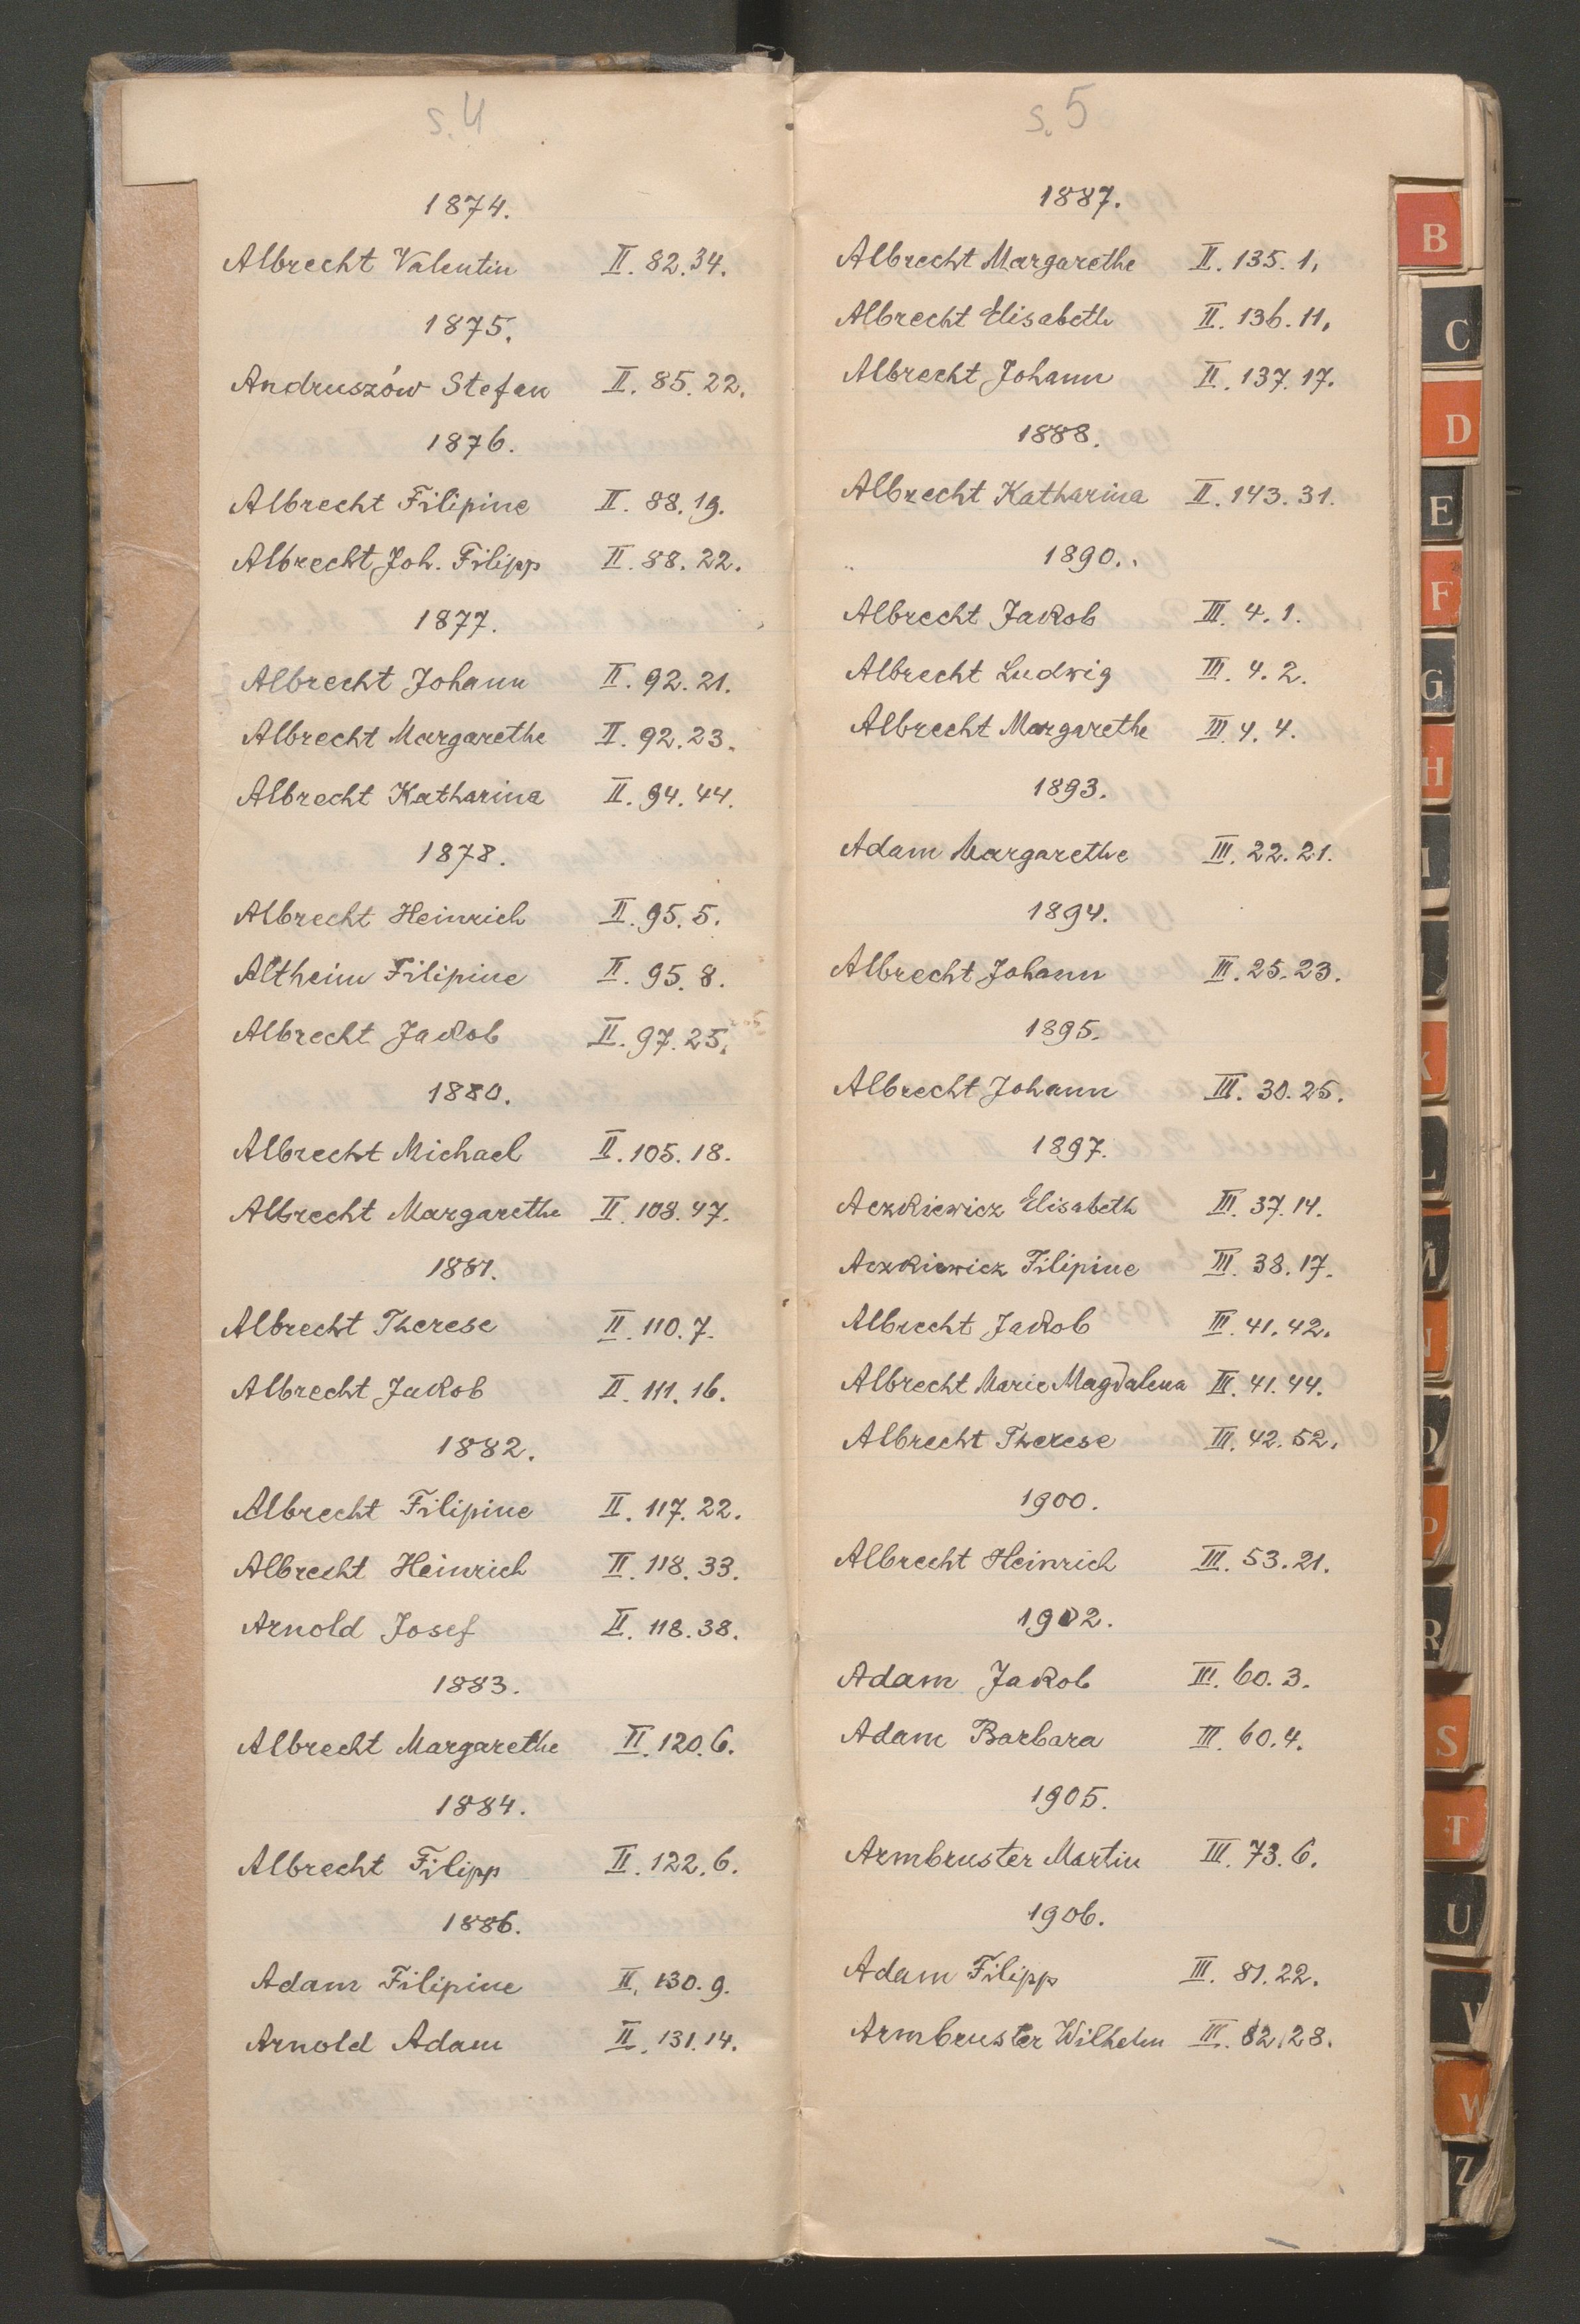 s. 4
1874.
Albrecht Valentin II. 82. 34.
1875.
Andruszów Stefan II. 85. 22.
1876.
Albrecht Filipine II. 88. 19.
Albrecht Joh. Filipp II. 88. 22.
1877.
Albrecht Johann II. 92. 21.
Albrecht Margarethe II. 92. 23.
Albrecht Katharina II. 94. 44.
1878.
Albrecht Heinrich II. 95. 5.
Altheim Filipine II. 95. 8.
Albrecht Jakob II. 97. 25.
1880.
Albrecht Michael II. 105. 18.
Albrecht Margarethe II. 108. 47.
1881.
Albrecht Therese II. 110. 7.
Albrecht Jakob II. 111. 16.
1882.
Albrecht Filipine II. 117. 22.
Albrecht Heinrich II. 118. 33.
Arnold Josef II. 118. 38.
1883.
Albrecht Margarethe II. 120. 6.
1884.
Albrecht Filipp II. 122. 6.
1886.
Adam Filipine II. 130. 9.
Arnold Adam II. 131. 14.
s. 5
1887.
Albrecht Margarethe II. 135. 1.
Albrecht Elisabeth II. 136. 11.
Albrecht Johann II. 137. 17.
1888.
Albrecht Katharina II. 143. 31.
1890.
Albrecht Jakob III. 4. 1.
Albrecht Ludwig III. 4. 2.
Albrecht Margarethe III. 4. 4.
1893.
Adam Margarethe III. 22. 21.
1894.
Albrecht Johann III. 25. 23.
1895.
Albrecht Johann III. 30. 25.
1897.
Aczkiewicz Elisabeth III. 37. 14.
Aczkiewicz Filipine III. 38. 17.
Albrecht Jakob III. 41. 42.
Albrecht Marie Magdalena III. 41. 44.
Albrecht Therese III. 42. 52.
1900.
Albrecht Heinrich III. 53. 21.
1902.
Adam Jakob III. 60. 3.
Adam Barbara III. 60. 4.
1905.
Armbruster Martin III. 73. 6.
1906.
Adam Filipp III. 81. 22.
Armbruster Wilhelm III. 82. 28.
B
C
D
E
F
G
H
I
K
L
M
N
O
P
R
S
T
U
V
W
Z